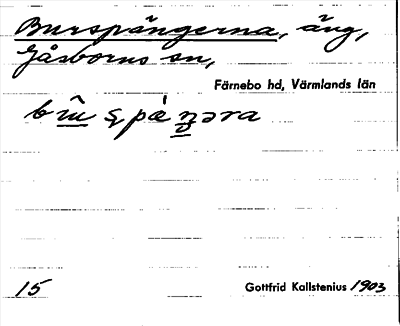 Burspängerna, äng,
Gåsborns sn,
Färnebo hd, Värmlands län
15
Gottfrid Kallstenius 1903